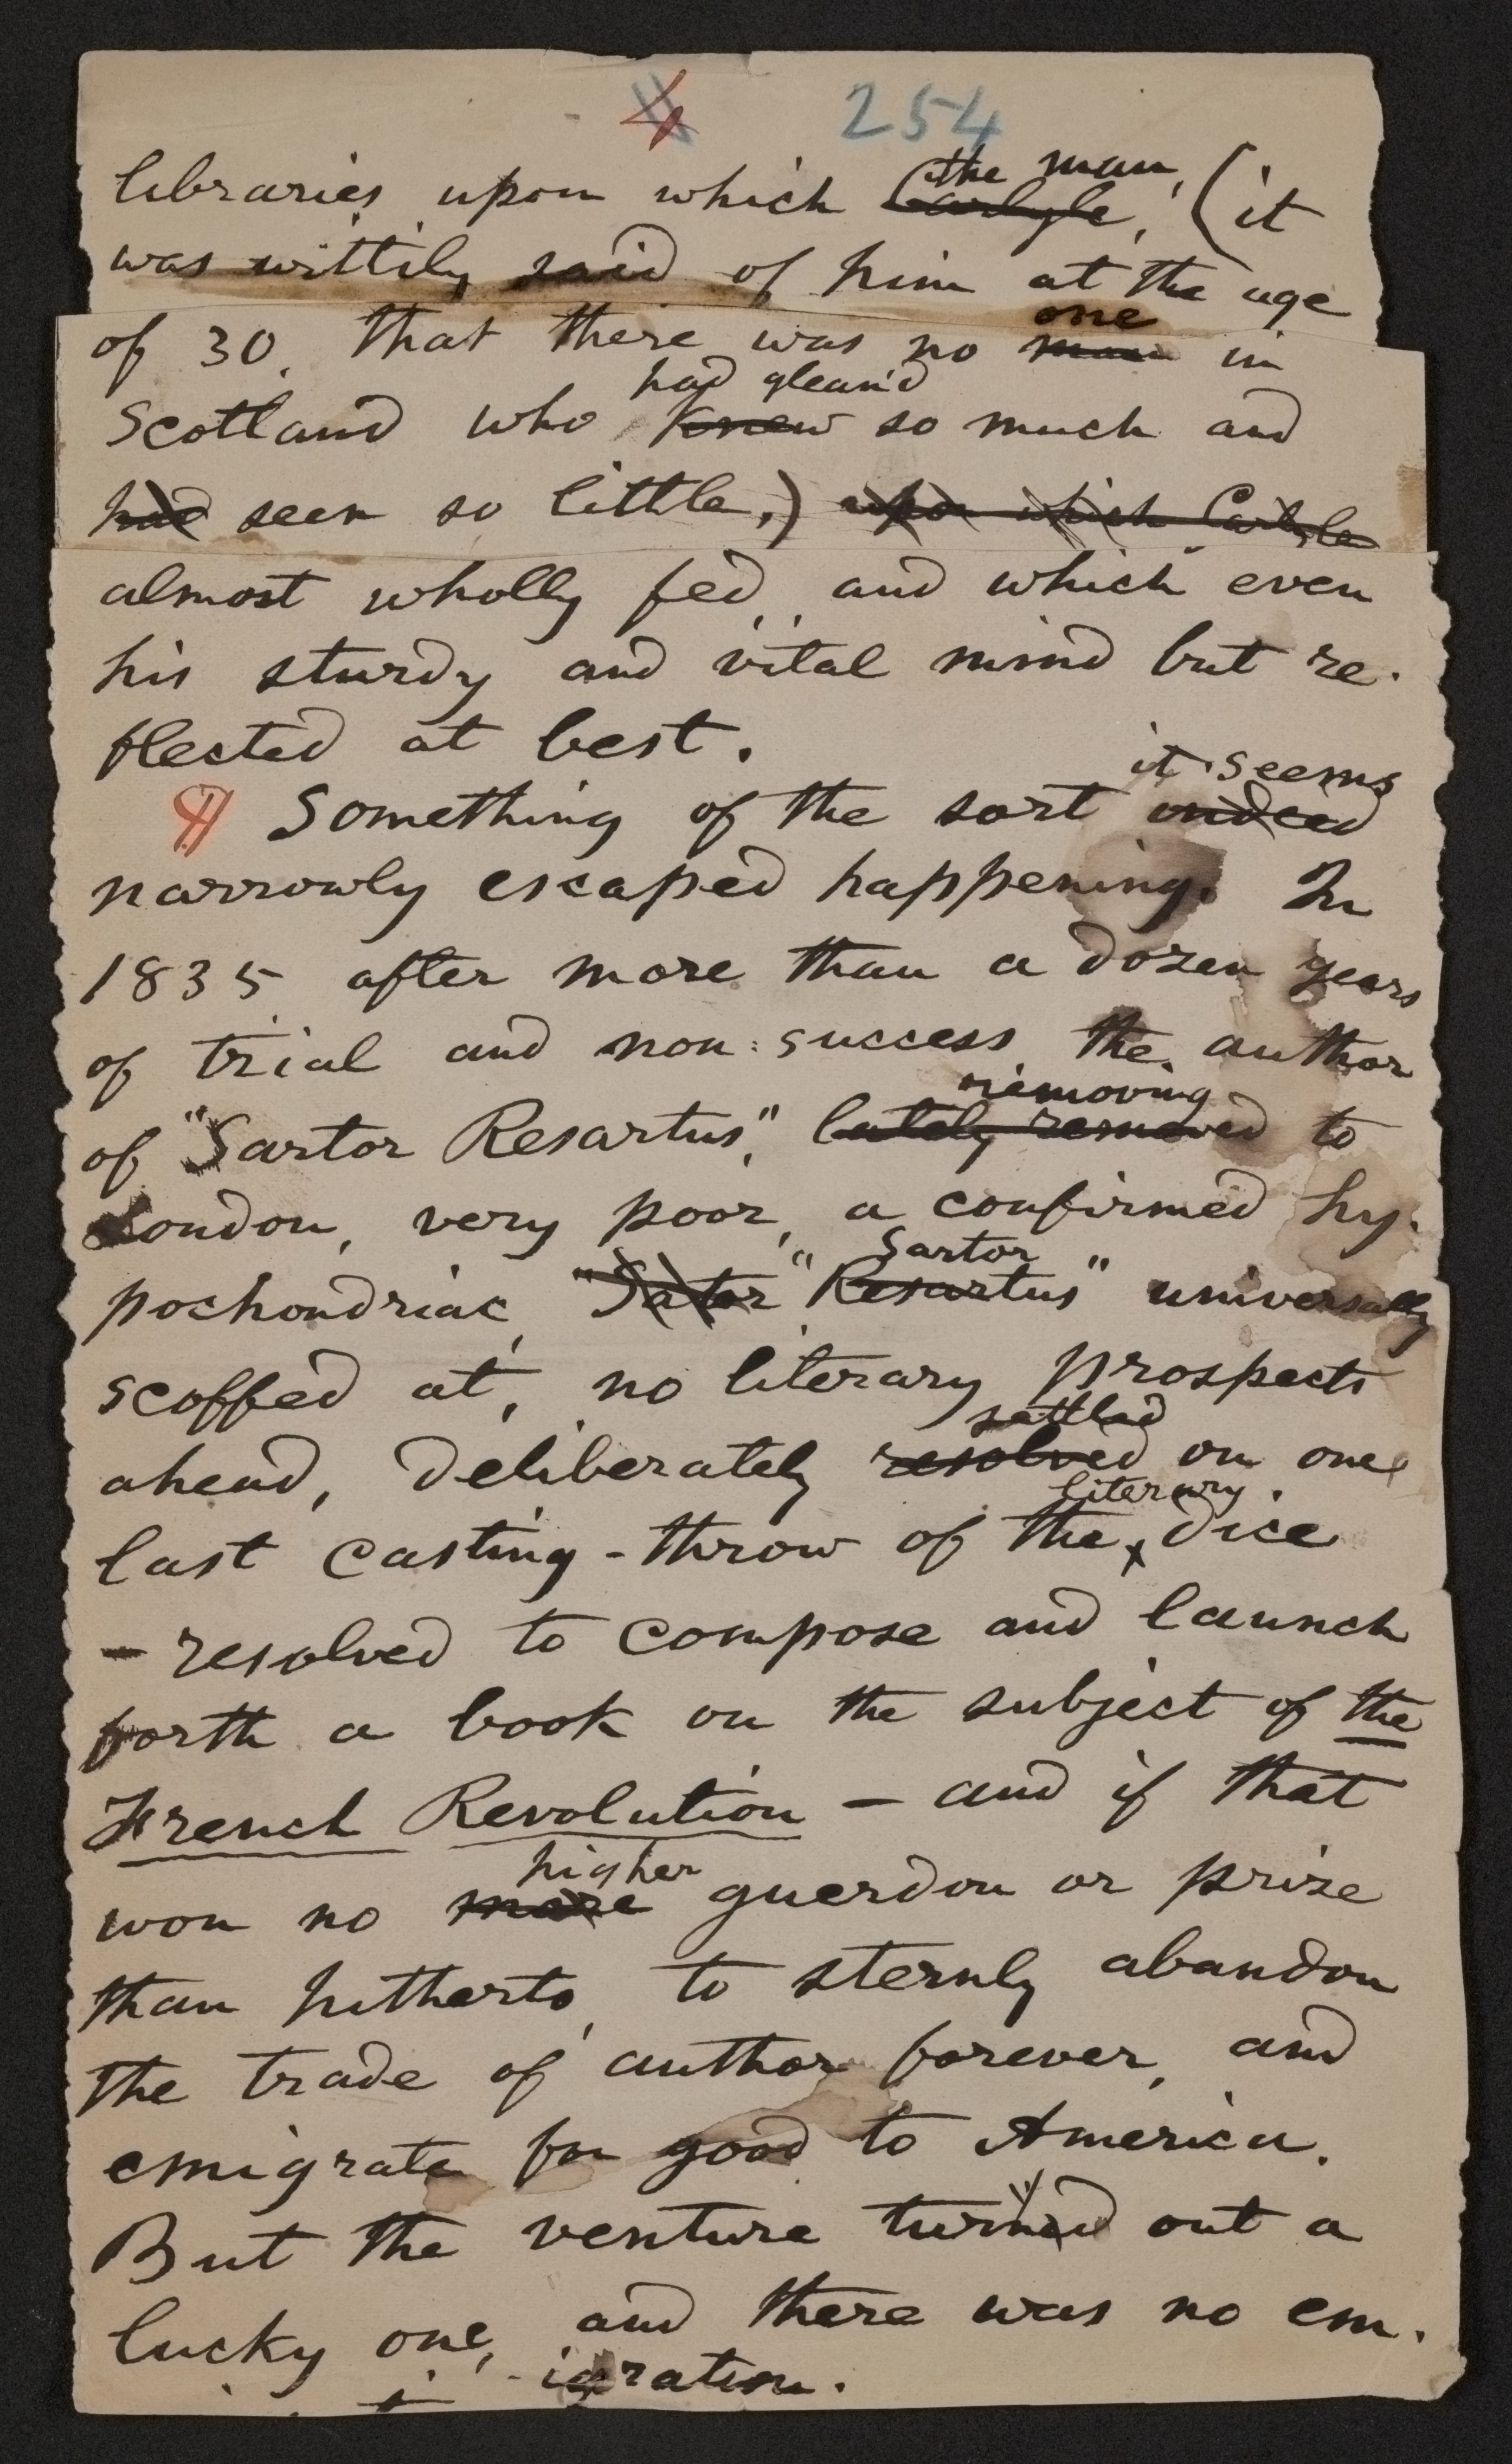 4 254
the man,
libraries upon which Carlyle, (it
was wittily said of him at the age
one
of 30, that there was no man in
had glean'd
Scotland who knew so much and
had seen so little,) upon which Carlyle
almost wholly fed, and which even
his sturdy and vital mind but re-
flected at best.
it seems
¶ Something of the sort indeed
narrowly escaped happening. In
1835 after more than a dozen years
of trial and non-success, the author
removing
of "Sartor Resartus," lately removed to
London, very poor, a confirmed hy-
Sartor
pochondriac, "Sator "Resartus" universally
scoffed at, no literary prospects
settled
ahead, deliberately resolved on one
literary
last casting-throw of the dice
— resolved to compose and launch
forth a book on the subject of the
French Revolution — and if that
higher
won no more guerdon or prize
than hitherto, to sternly abandon
the trade of author forever, and
emigrate for good to America.
But the venture turned out a
lucky one, and there was no em-
igration.